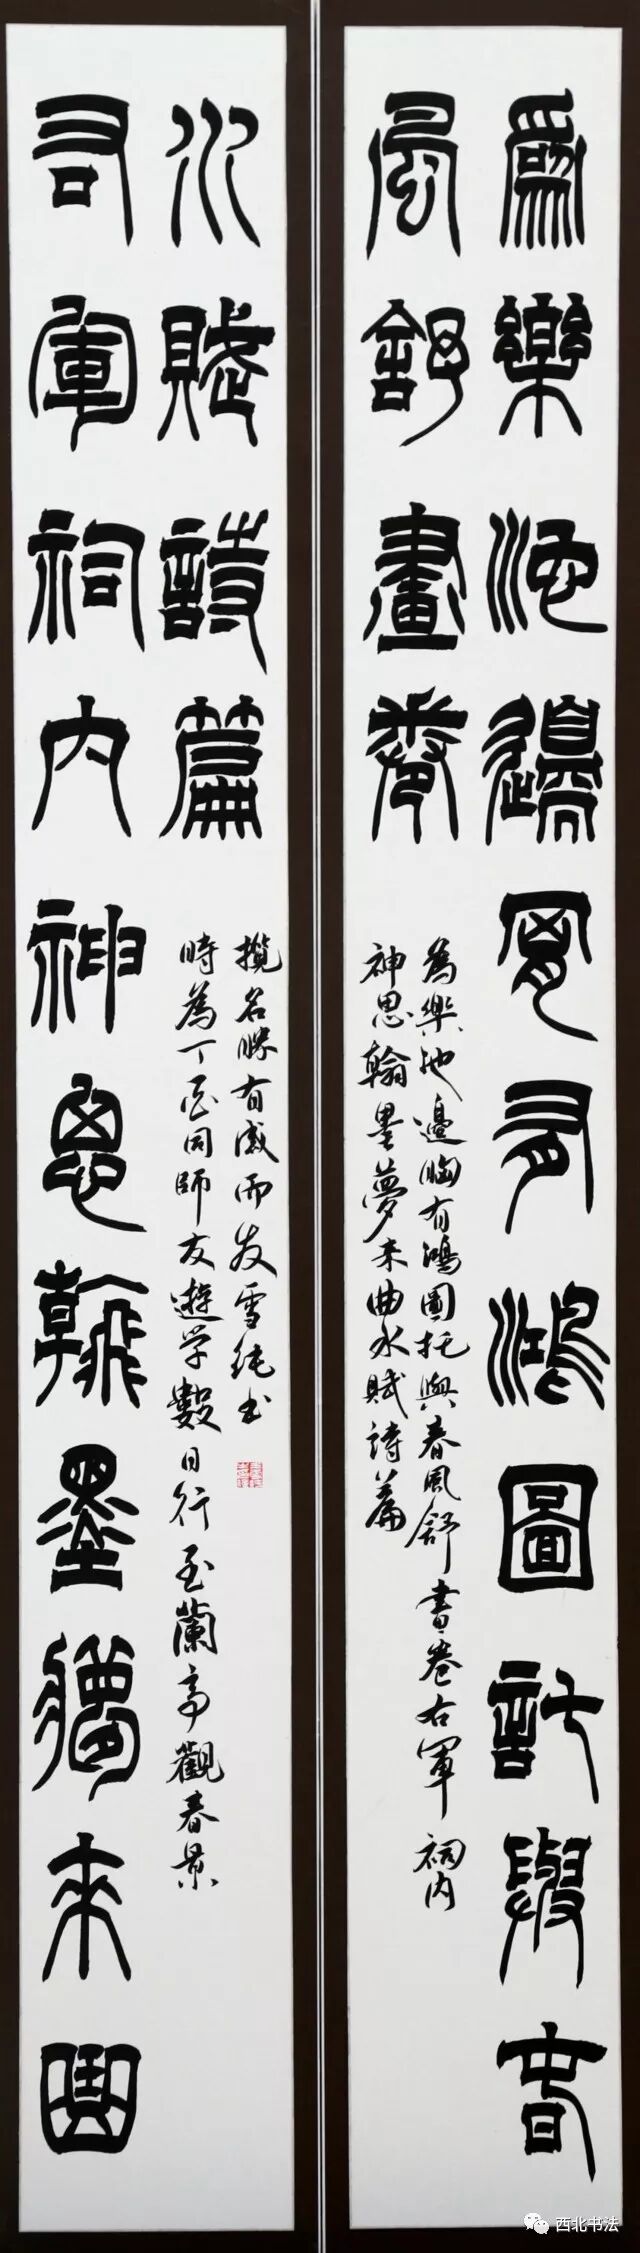 為樂池邊胸有鴻圖託與春
風舒畫卷
為樂池邊胸有鴻圖托與春風舒畫卷右軍祠内
神思翰墨夢来曲水賦詩篇
右軍祠内神思翰墨夢來曲
水賦詩篇
時為丁酉同師友遊学數日行至蘭亭觀春景
攬名勝有感而发雪纯书
西北书法